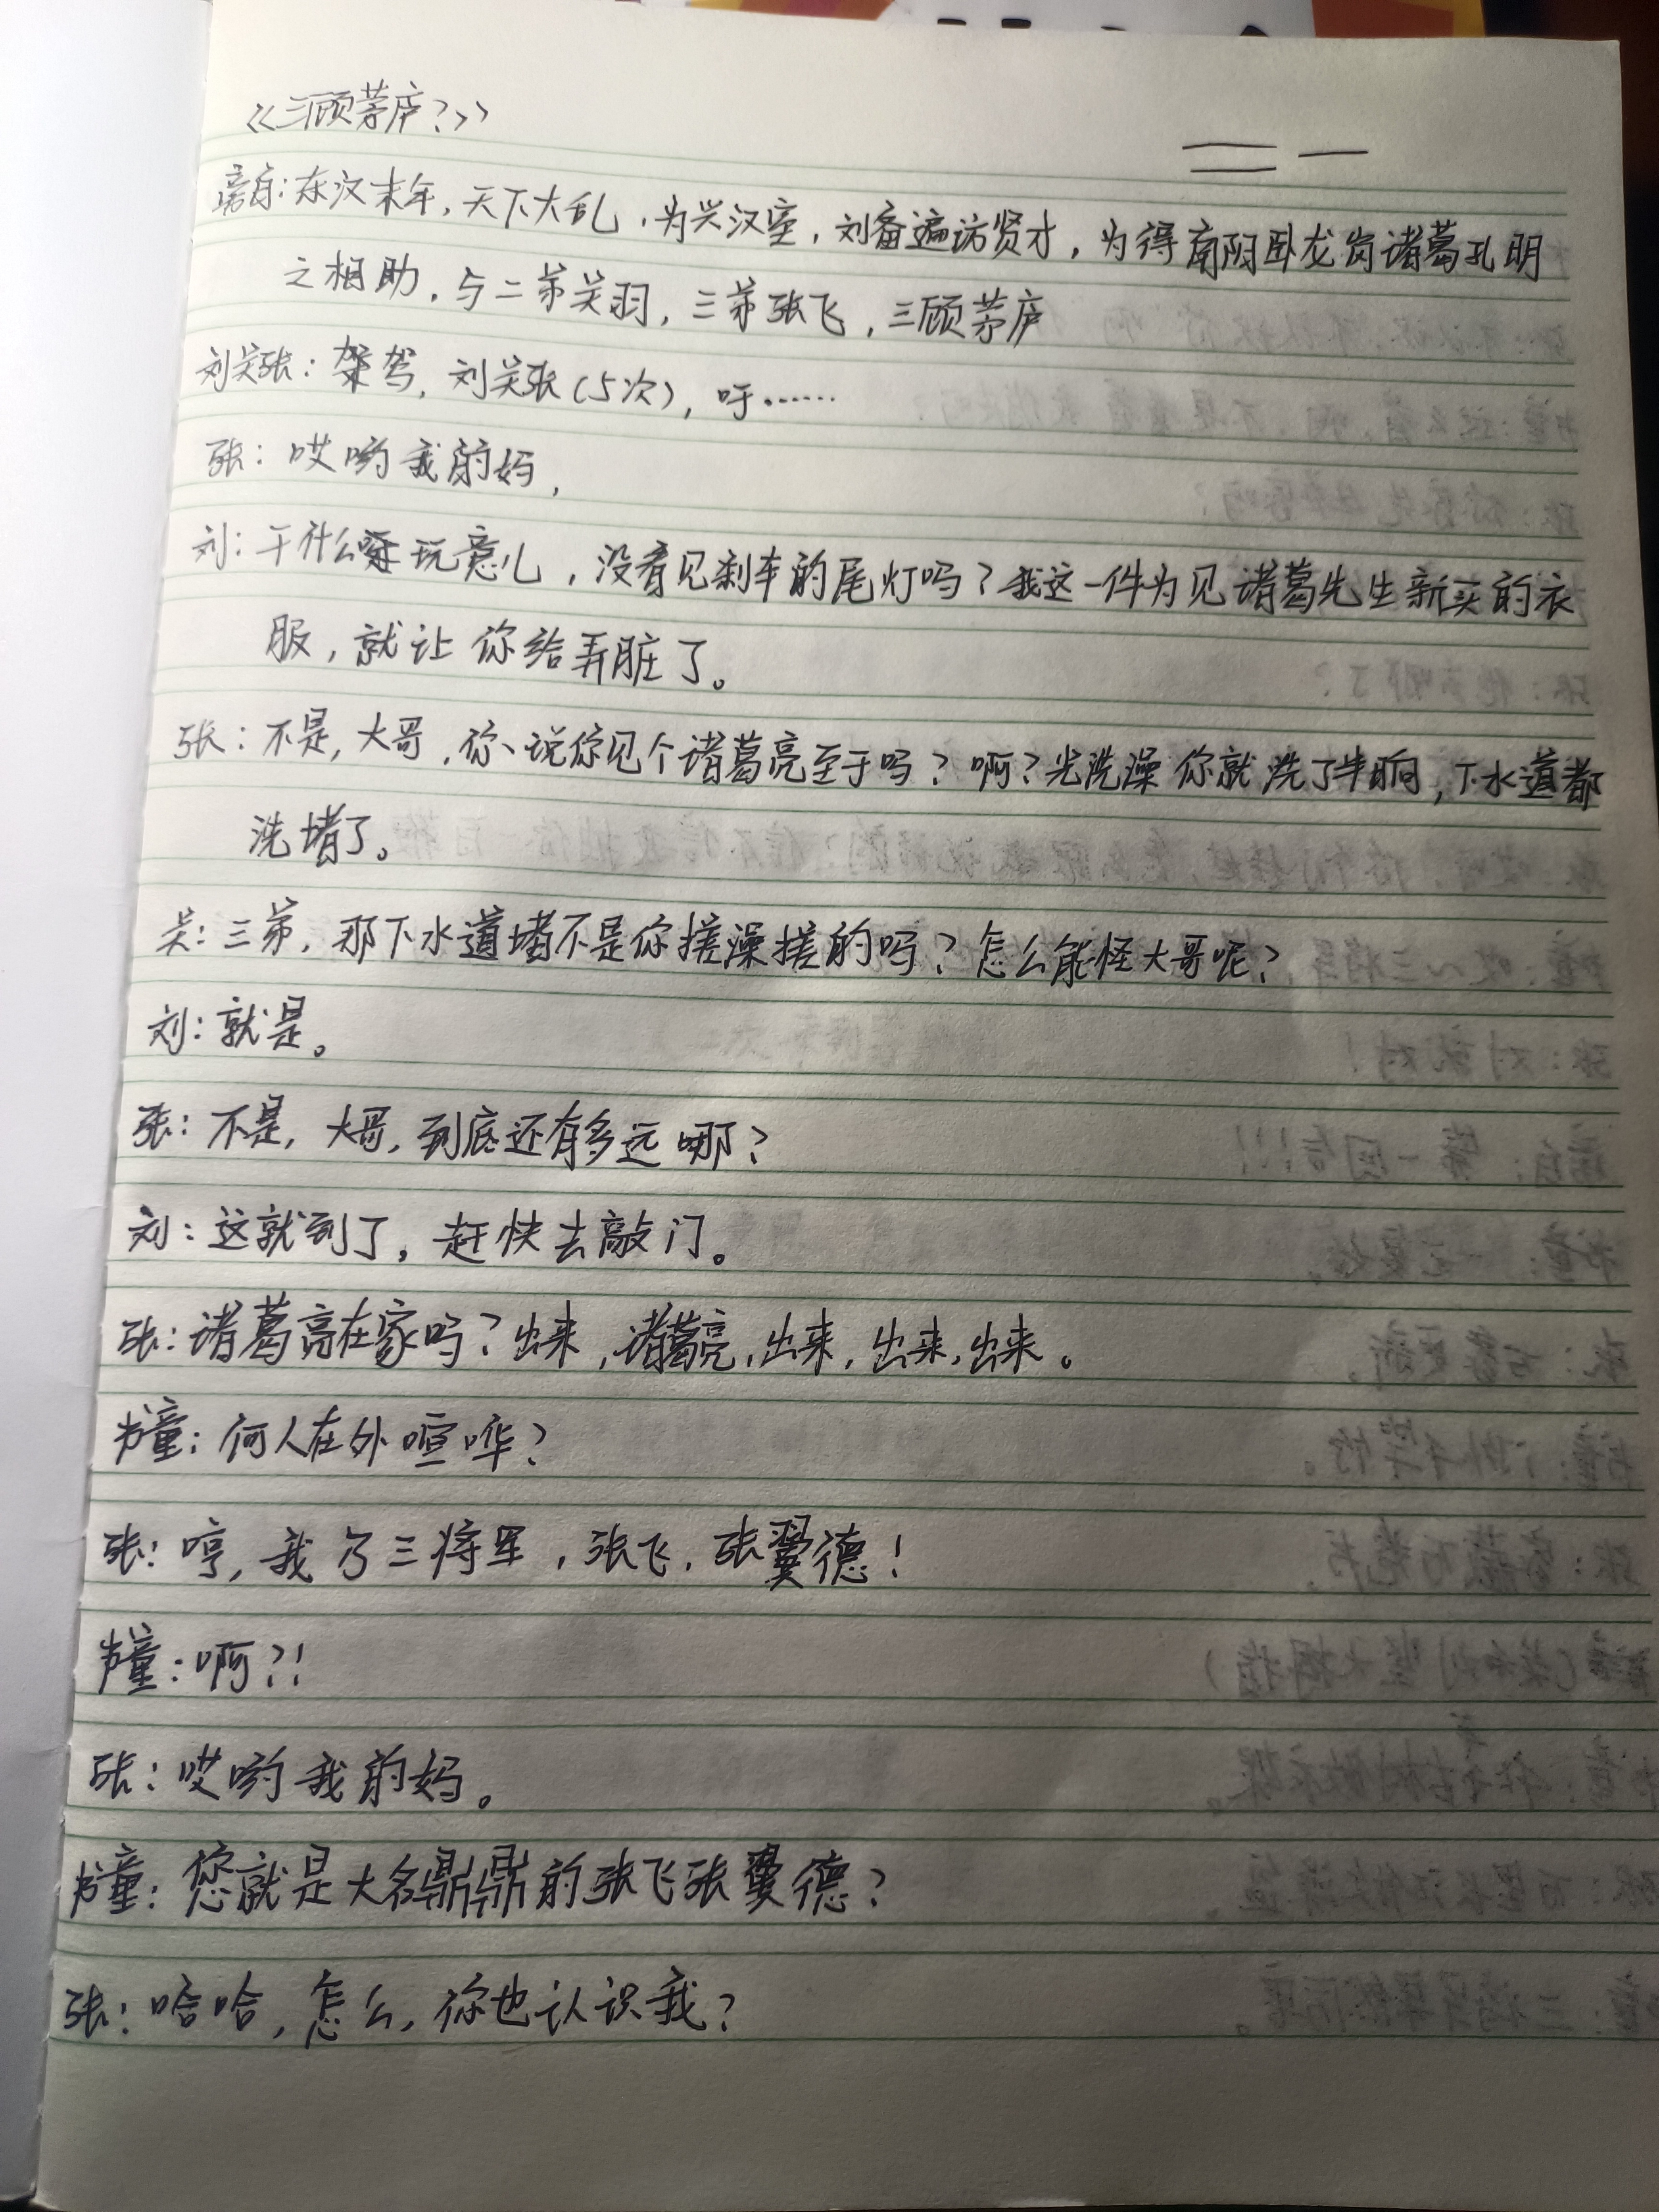 《三顾茅庐?》
旁白:东汉末年,天下大乱,为兴汉室,刘备遍访贤才,为得南阳卧龙岗诸葛孔明
之相助,与二弟关羽,三弟张飞,三顾茅庐
刘关张:驾驾,刘关张(5次),吁……
张:哎哟我的妈,
刘:干什么玩意儿,没看见刹车的尾灯吗?我这一件为见诸葛先生新买的衣
服,就让你给弄脏了。
张:不是,大哥,你、说你见个诸葛亮至于吗?啊?光洗澡你就洗了半晌,下水道都
洗堵了。
关:三弟,那下水道堵不是你搓澡搓的吗?怎么能怪大哥呢?
刘:就是。
张:不是,大哥,到底还有多远哪?
刘:这就到了,赶快去敲门。
张:诸葛亮在家吗?出来,诸葛亮,出来,出来,出来。
书童:何人在外喧哗?
张:哼,我乃三将军,张飞,张翼德!
书童:啊?!
张:哎哟我的妈。
书童:您就是大名鼎鼎的张飞张翼德?
张:哈哈,怎么,你也认识我?